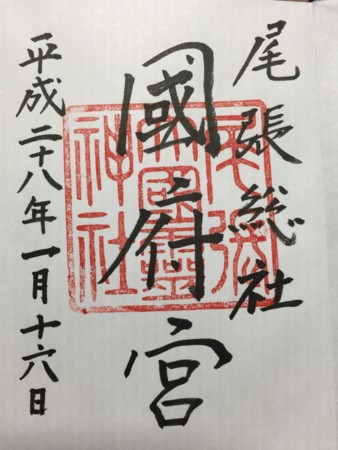 尾張総社
國府宮
平成二十八年一月十六日
尾張
大國靈
神社